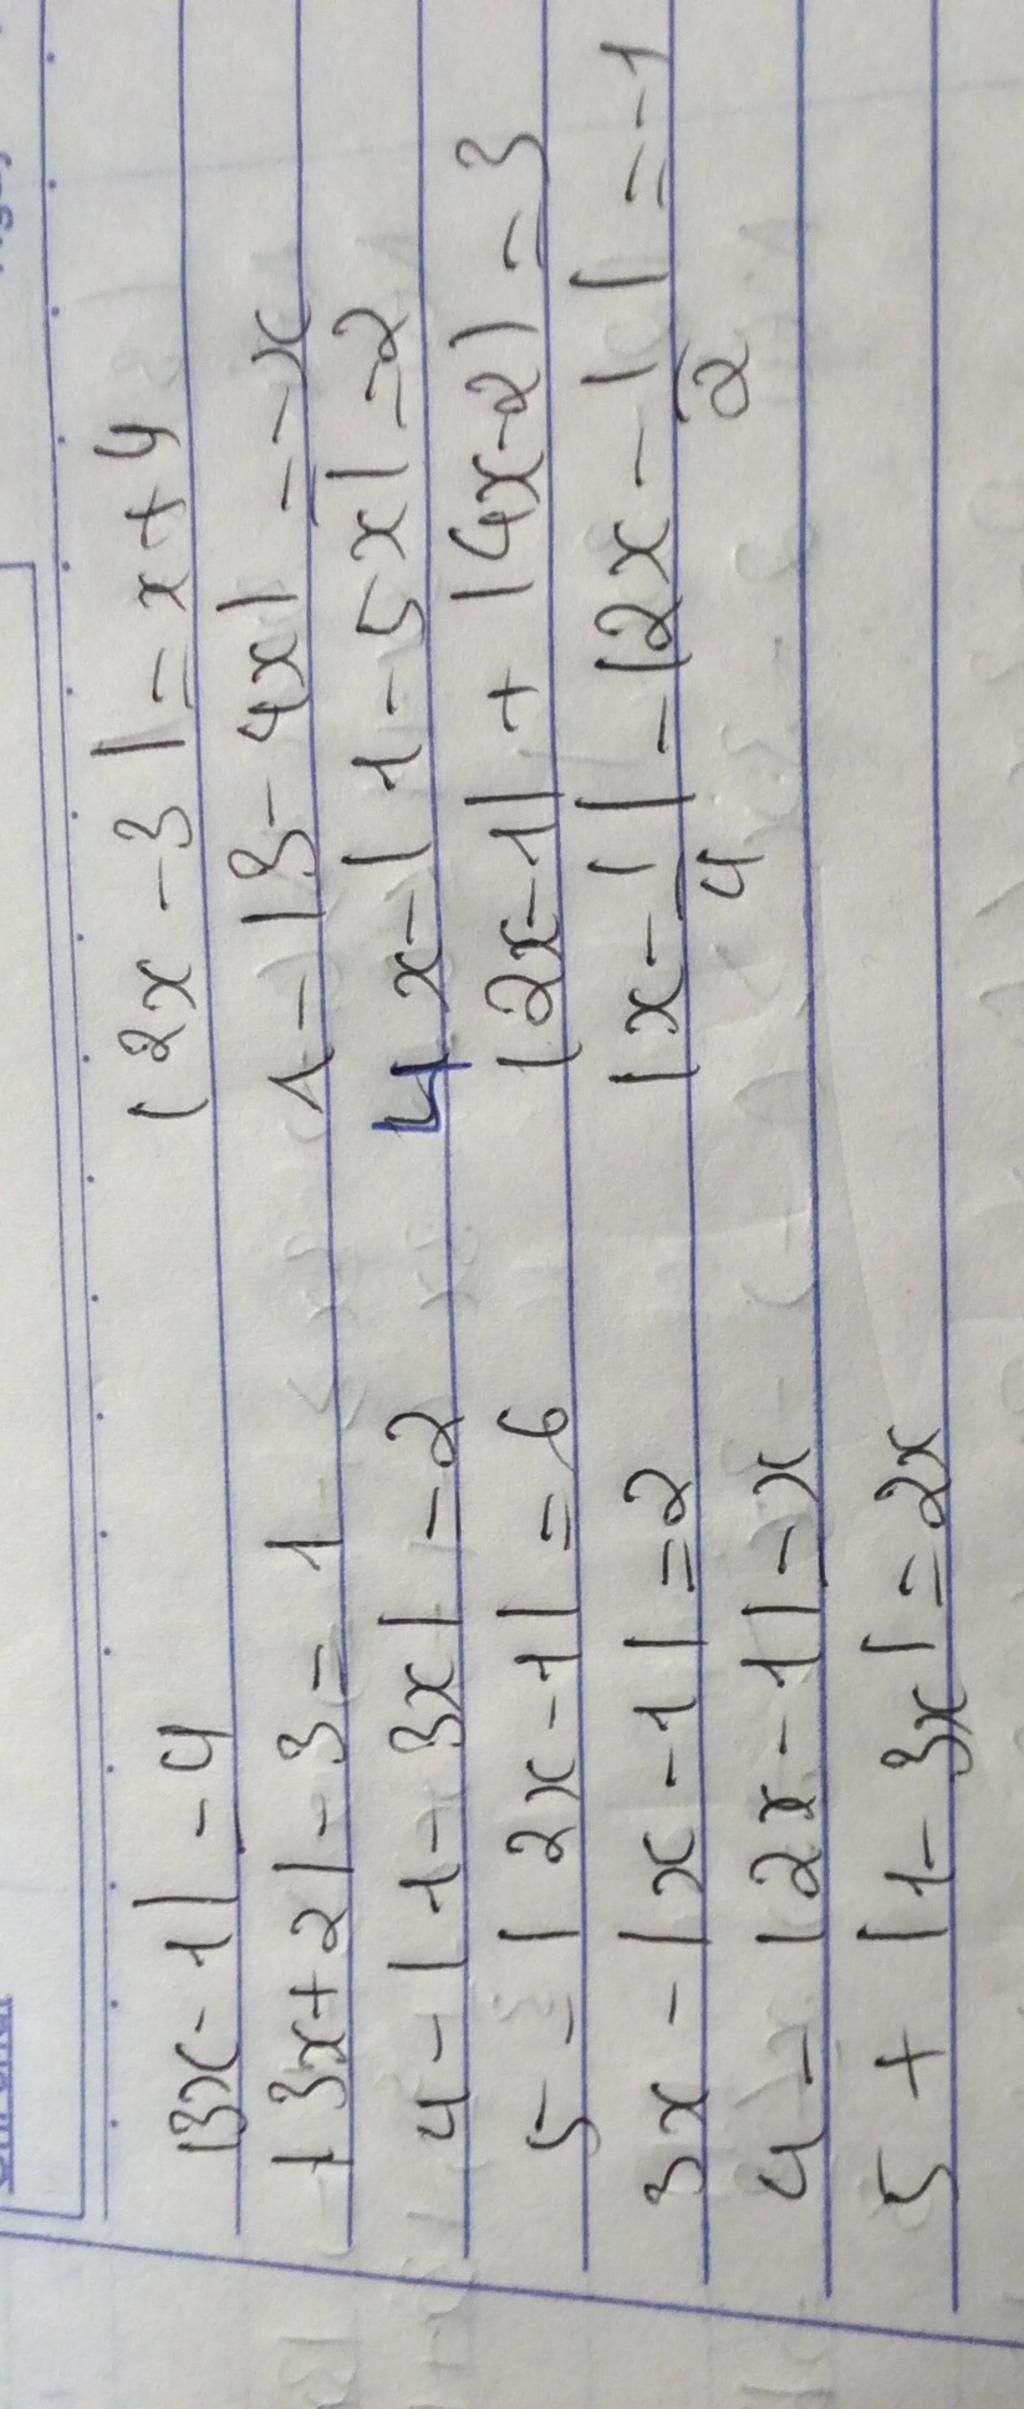 |3x - 1| = 4
|3x + 2| - 3 = 1
4 - |1 - 3x| = 2
5 - |2x - 1| = 6
3x - |x - 1| = 2
4 - |2x - 1| = x
5 + |1 - 3x| = 2x
|2x - 3| = x + 4
1 - |3 - 4x| = -x
4x - |1 - 5x| = 2
|2x - 1| + |4x - 2| = 3
|x - 1/4| - |2x - 1/2| = -1